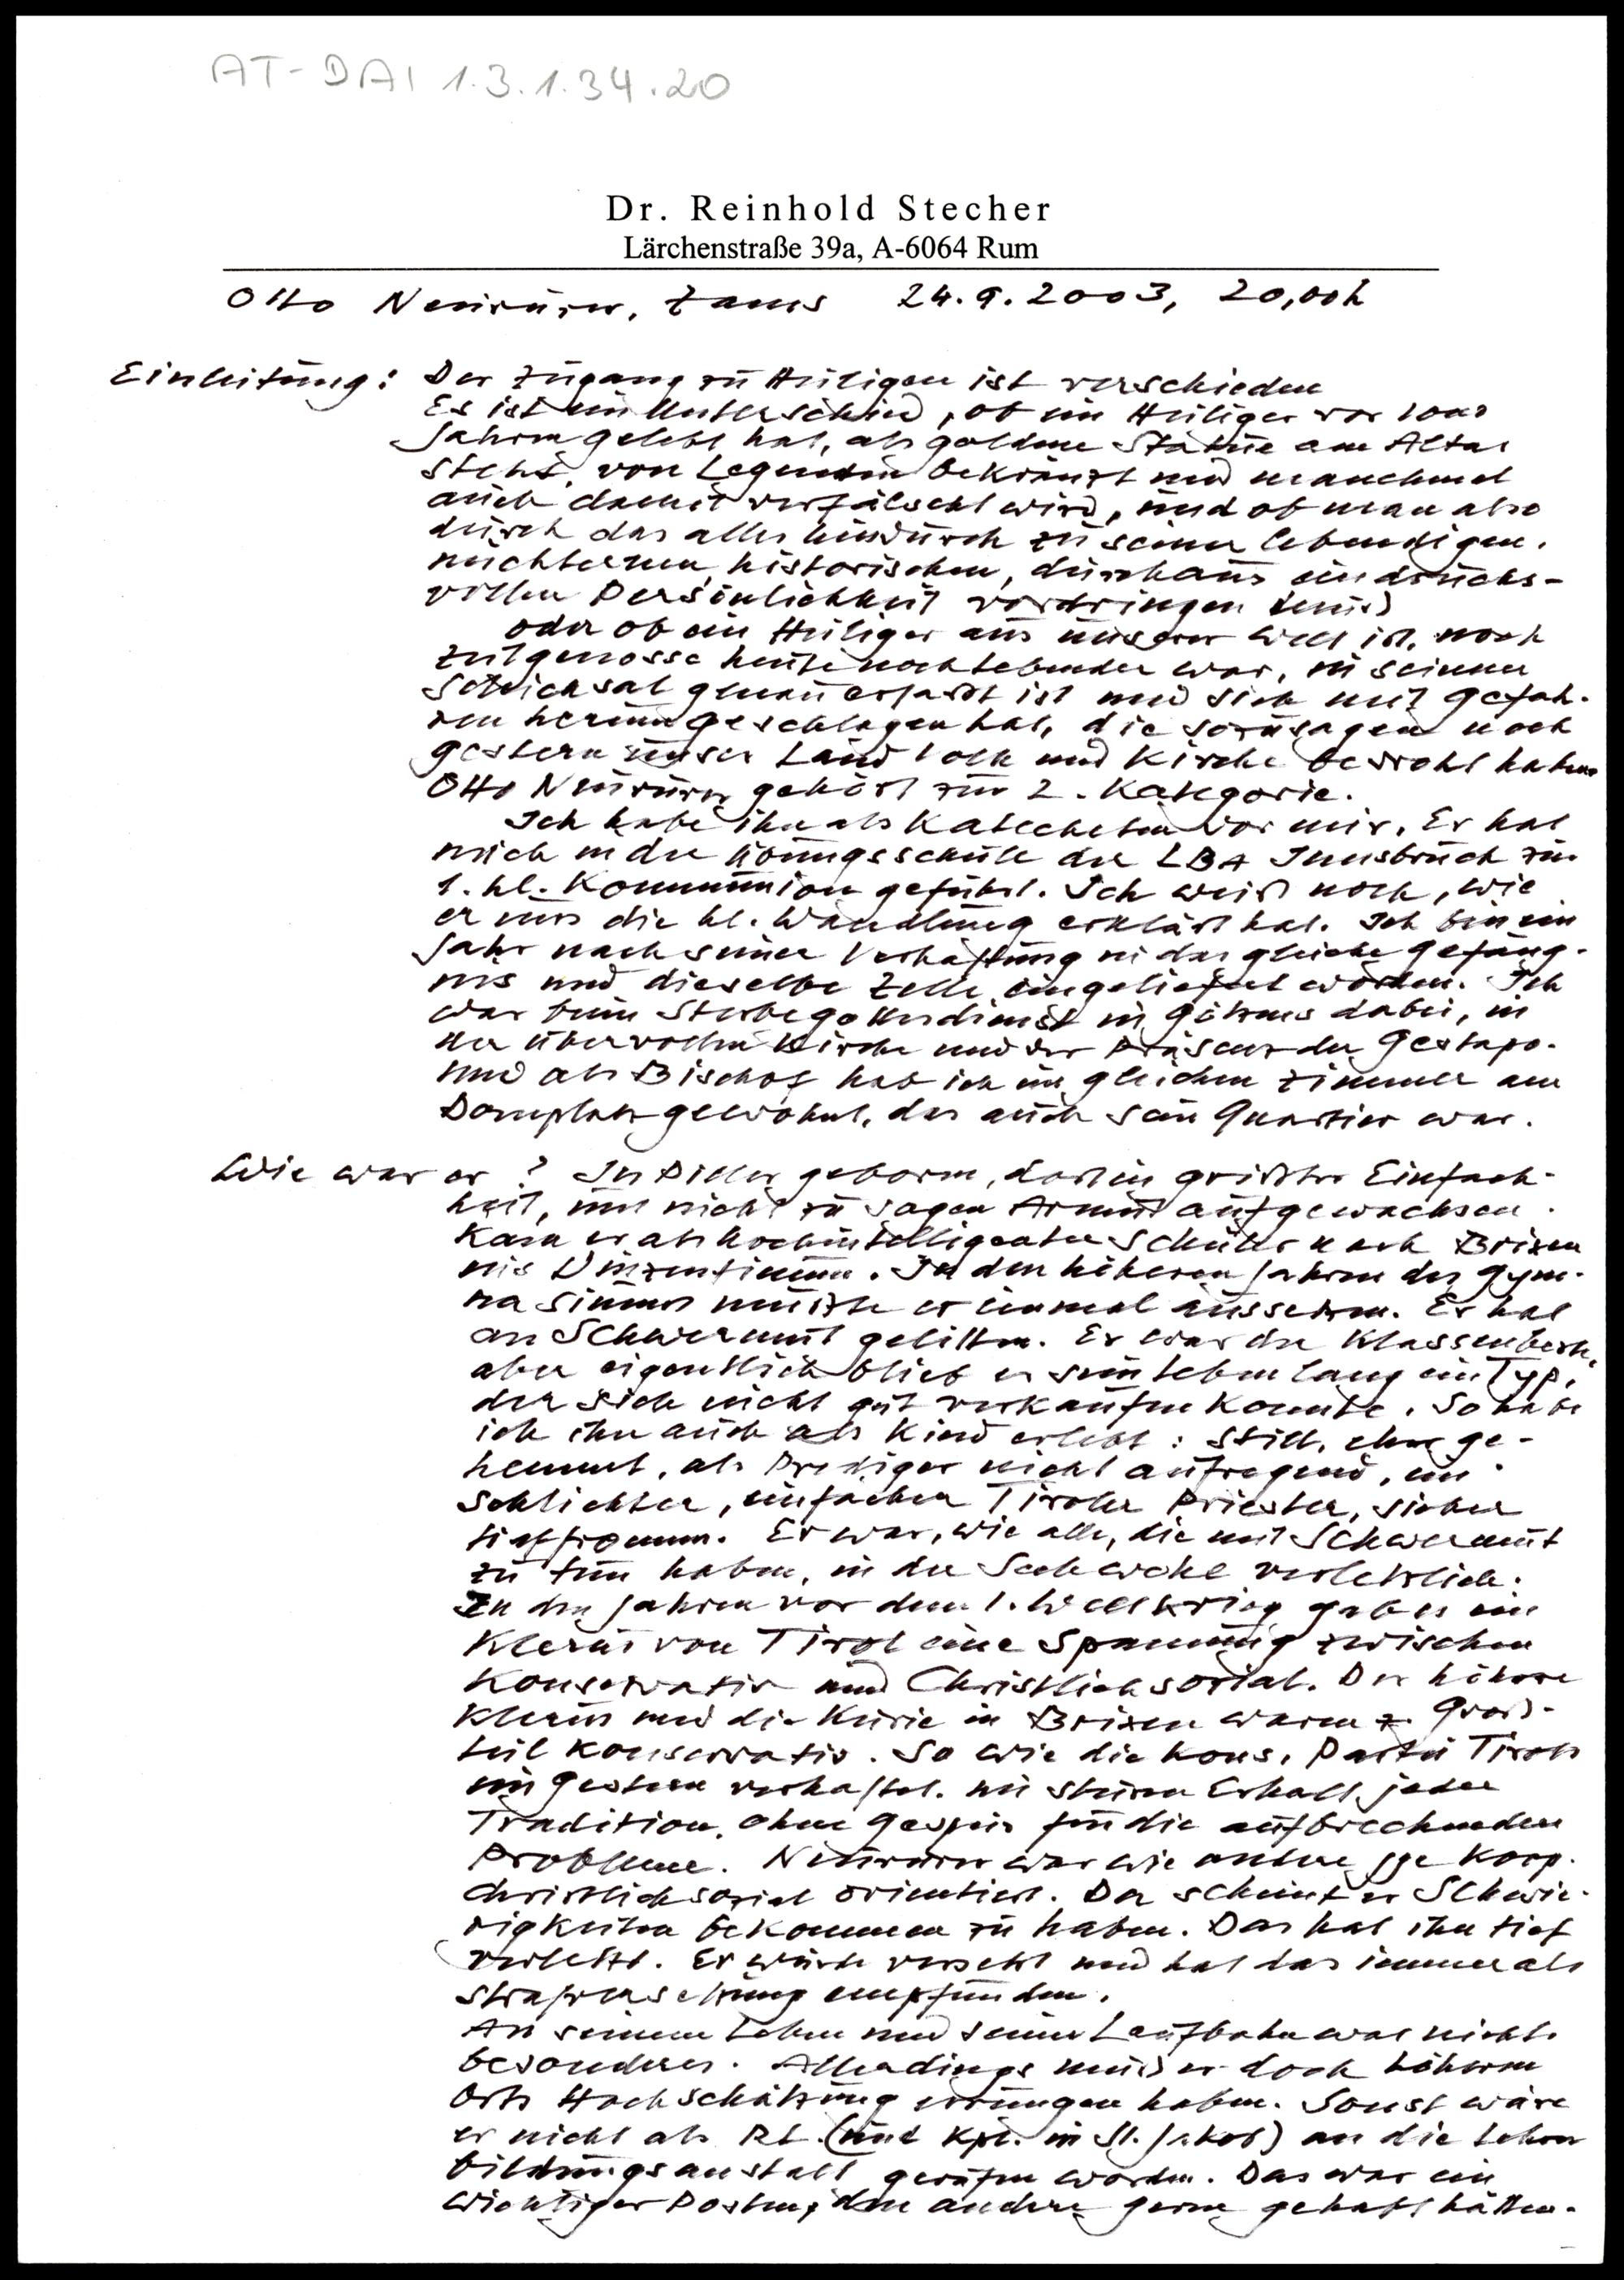 AT-DAI 1.3.1.34.20
Dr. Reinhold Stecher
Lärchenstraße 39a, A-6064 Rum
Otto Neururer, Zams 24.9.2003, 20,00h
Einleitung: Der Zugang zu Heiligen ist verschieden
Es ist ein Unterschied, ob ein Heiliger vor 1000
Jahren gelebt hat, als goldene Statue am Altar
steht, von Legenden bekränzt und manchmal
auch damit verfälscht wird, und ob man also
durch das alles hindurch zu seiner lebendigen,
nüchternen, historischen, durchaus eindrucks-
vollen Persönlichkeit vordringen muß
oder ob ein Heiliger aus unserer Welt ist, noch
Zeitgenosse heute noch Lebender war, in seinem
Schicksal genau erfaßt ist und sich mit Gefah-
ren herumgeschlagen hat, die sozusagen noch
gestern unser Land Volk und Kirche bedroht haben
Otto Neururer gehört zur 2. Kategorie.
Ich habe ihn als Katecheten vor mir. Er hat
mich in der Übungsschule der LBA Innsbruck zur
1. hl. Kommunion geführt. Ich weiß noch, wie
er uns die hl. Wandlung erklärt hat. Ich bin ein
Jahr nach seiner Verhaftung in das gleiche Gefäng-
nis und dieselbe Zelle eingeliefert worden. Ich
war beim Sterbegottesdienst in Götzens dabei, in
der übervollen Kirche und der Präsenz der Gestapo.
Und als Bischof hab ich im gleichen Zimmer am
Domplatz gewohnt, das auch sein Quartier war.
Wie war er? In Piller geboren, dort in größter Einfach-
heit, um nicht zu sagen Armut aufgewachsen.
Kam er als hochintelligenter Schüler nach Brixen
ins Vinzentinum. In den höheren Jahren des Gym-
nasiums mußte er einmal aussetzen. Er hat
an Schwermut gelitten. Er war der Klassenbeste,
aber eigentlich blieb er sein Leben lang ein Typ,
der sich nicht gut verkaufen konnte. So habe
ich ihn auch als Kind erlebt: Still, eher ge-
hemmt, als Prediger nicht aufregend, ein
schlichter, einfacher Tiroler Priester, sicher
tieffromm. Er war, wie alle, die mit Schwermut
zu tun haben, in der Seele wohl verletzlich.
In den Jahren vor dem 1. Weltkrieg gab es im
Klerus von Tirol eine Spannung zwischen
Konservativ und Christlichsozial. Der höhere
Klerus und die Kurie in Brixen waren z. Groß-
teil konservativ. So wie die kons. Partei Tirols
im Gestern verhaftet, im sturen Erhalt jeder
Tradition, ohne Gespür für die aufbrechenden
Probleme. Neururer war wie andere jge Koop.
christlichsozial orientiert. Da scheint er Schwie-
rigkeiten bekommen zu haben. Das hat ihn tief
verletzt. Er wurde versetzt und hat das immer als
Strafversetzung empfunden.
An seinem Leben und seiner Laufbahn war nichts
besonderes. Allerdings muß er doch höheren
Orts Hochschätzung errungen haben. Sonst wäre
er nicht als RL. (und Kpl. in St. Jakob) an die Lehrer
bildungsanstalt gerufen worden. Das war ein
wichtiger Posten, den andere gerne gehabt hätten.